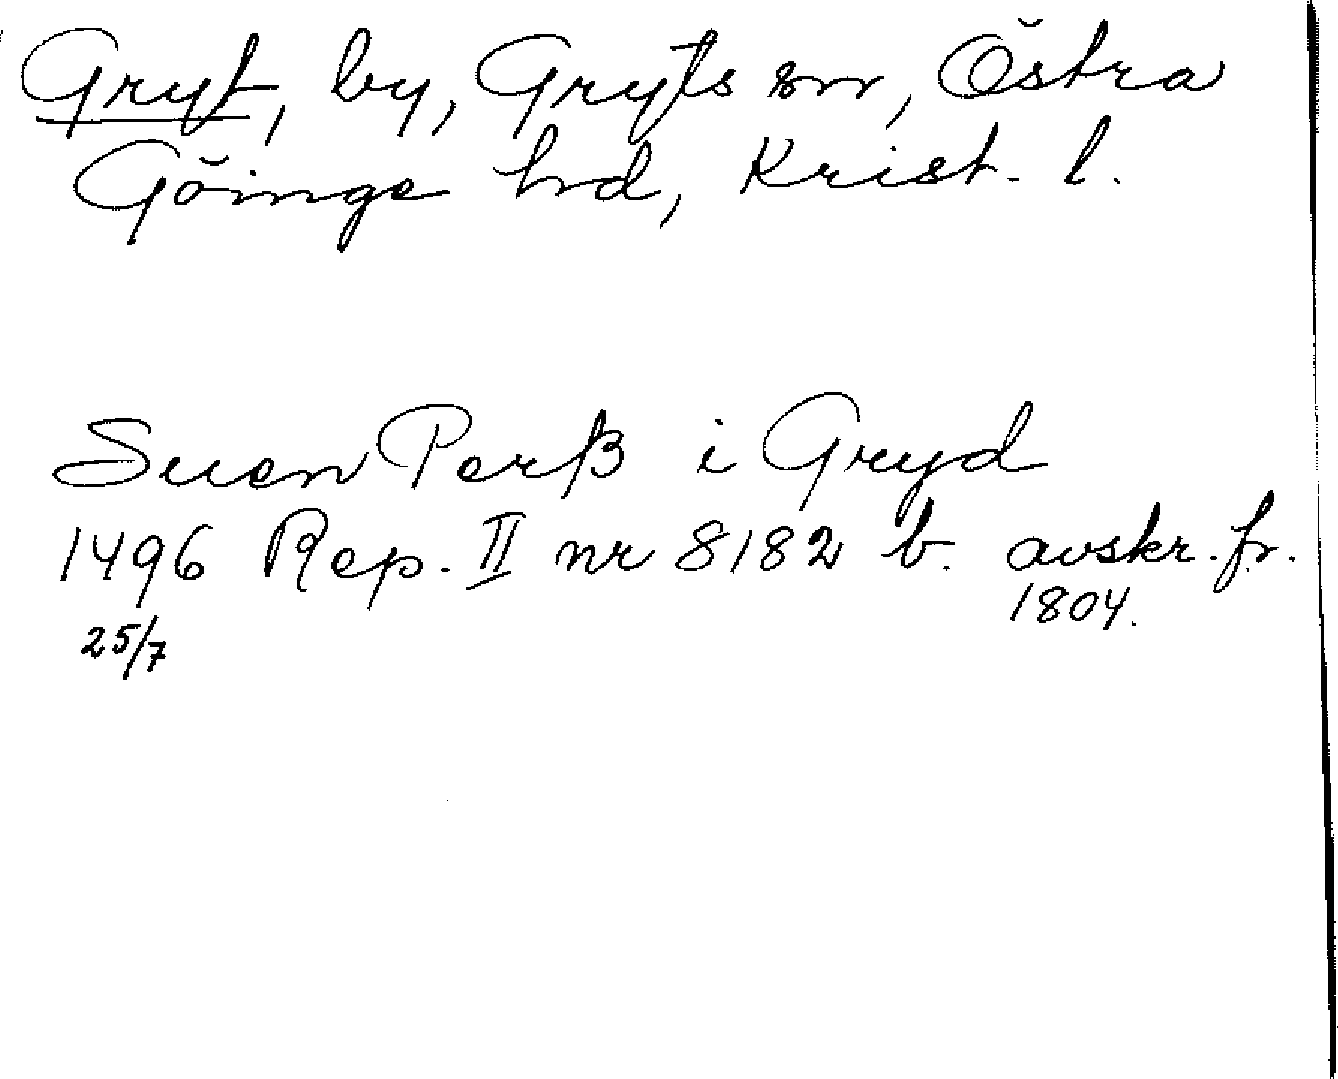 Gryt, by, Gryts sn, Östra
Göinge hrd, Krist. l.
Suen Perß i Gryd
1496 Rep. II nr 8182 b. avskr. fr.
1804.
25/7